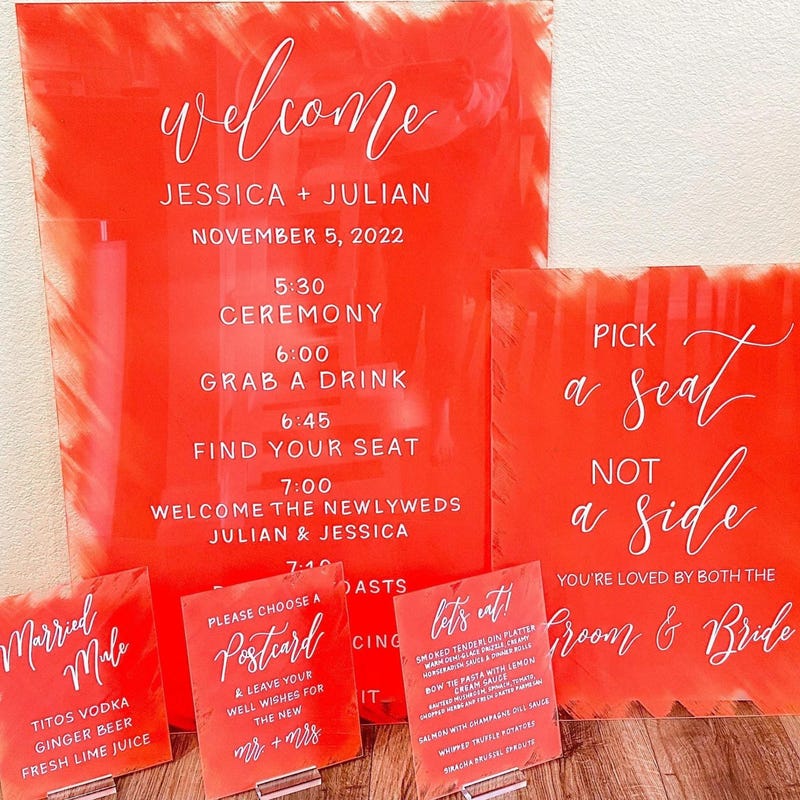 welcome
JESSICA + JULIAN
NOVEMBER 5, 2022
5:30
CEREMONY
6:00
GRAB A DRINK
6:45
FIND YOUR SEAT
7:00
WELCOME THE NEWLYWEDS
JULIAN & JESSICA
7:10
PICK
a seat
NOT
a side
YOU'RE LOVED BY BOTH THE
Groom & Bride
Married
Mule
TITOS VODKA
GINGER BEER
FRESH LIME JUICE
PLEASE CHOOSE A
Postcard
& LEAVE YOUR
WELL WISHES FOR
THE NEW
mr. + mrs.
let's eat!
SMOKED TENDERLOIN PLATTER
WARM DEMI-GLACE DRIZZLE, CREAMY
HORSERADISH SAUCE & DINNER ROLLS
BOW TIE PASTA WITH LEMON
CREAM SAUCE
SAUTEED MUSHROOM, SPINACH, TOMATO,
CHOPPED HERBS AND FRESH GRATED PARMESAN
SALMON WITH CHAMPAGNE DILL SAUCE
WHIPPED TRUFFLE POTATOES
SIRACHA BRUSSEL SPROUTS